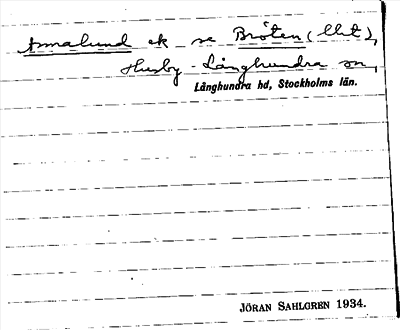 Annalund ek se Bröten (llit),
Husby-Långhundra sn,
Långhundra hd, Stockholms län.
JÖRAN SAHLGREN 1934.